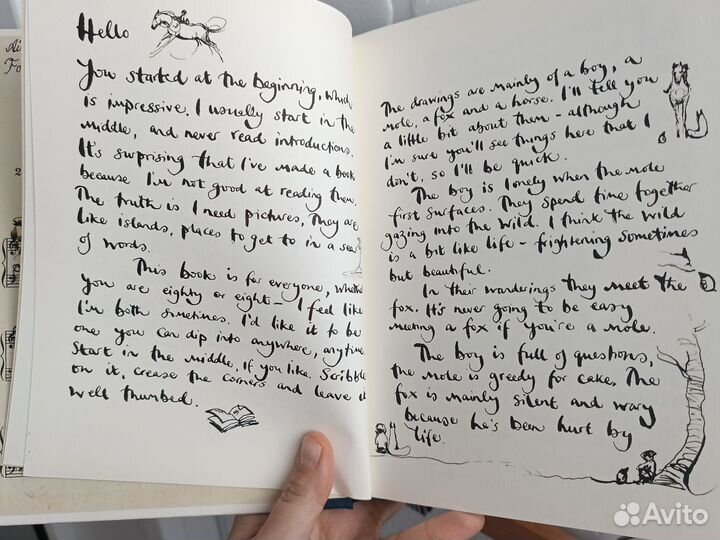 Hello
You started at the beginning, which
is impressive. I usually start in the
middle, and never read introductions.
It's surprising that I've made a book
because I'm not good at reading them.
The truth is I need pictures, They are
like islands, places to get to in a sea
of words.
This book is for everyone, whether
you are eighty or eight – I feel like
I'm both sometimes. I'd like it to be
one you can dip into anywhere, anytime.
Start in the middle, if you like. Scribble
on it, crease the corners and leave it
well thumbed.
The drawings are mainly of a boy, a
mole, a fox and a horse. I'll tell you
a little bit about them – although
I'm sure you'll see things here that I
don't, so I'll be quick.
The boy is lonely when the mole
first surfaces. They spend time together
gazing into the wild. I think the wild
is a bit like life – frightening sometimes
but beautiful.
In their wanderings they meet the
fox. It's never going to be easy
meeting a fox if you're a mole.
The boy is full of questions,
the mole is greedy for cake. The
fox is mainly silent and wary
because he's been hurt by
life.
Avito